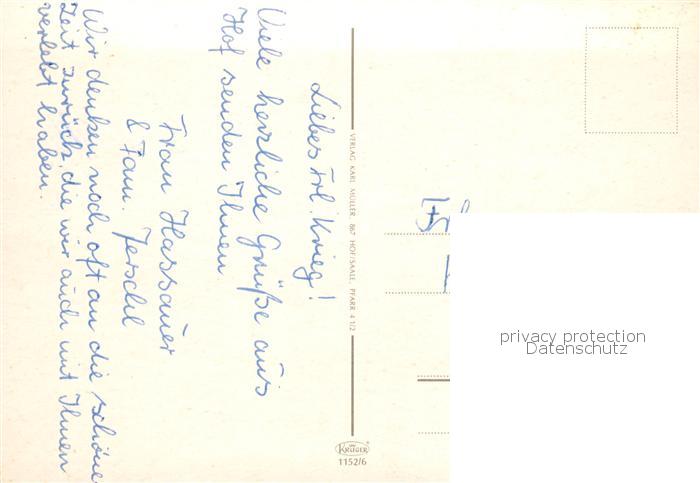 Liebes Frl. Krieg!
Viele herzliche Grüße aus
Hof senden Ihnen
Frau Hassauer
& Fam. Jerschl
Wir denken noch oft an die schöne
Zeit zurück, die wir auch mit Ihnen
verlebt haben.
VERLAG KARL MÜLLER, 867 HOF/SAALE, PFARR 4 1/2
KRÜGER
1152/6
privacy protection
Datenschutz